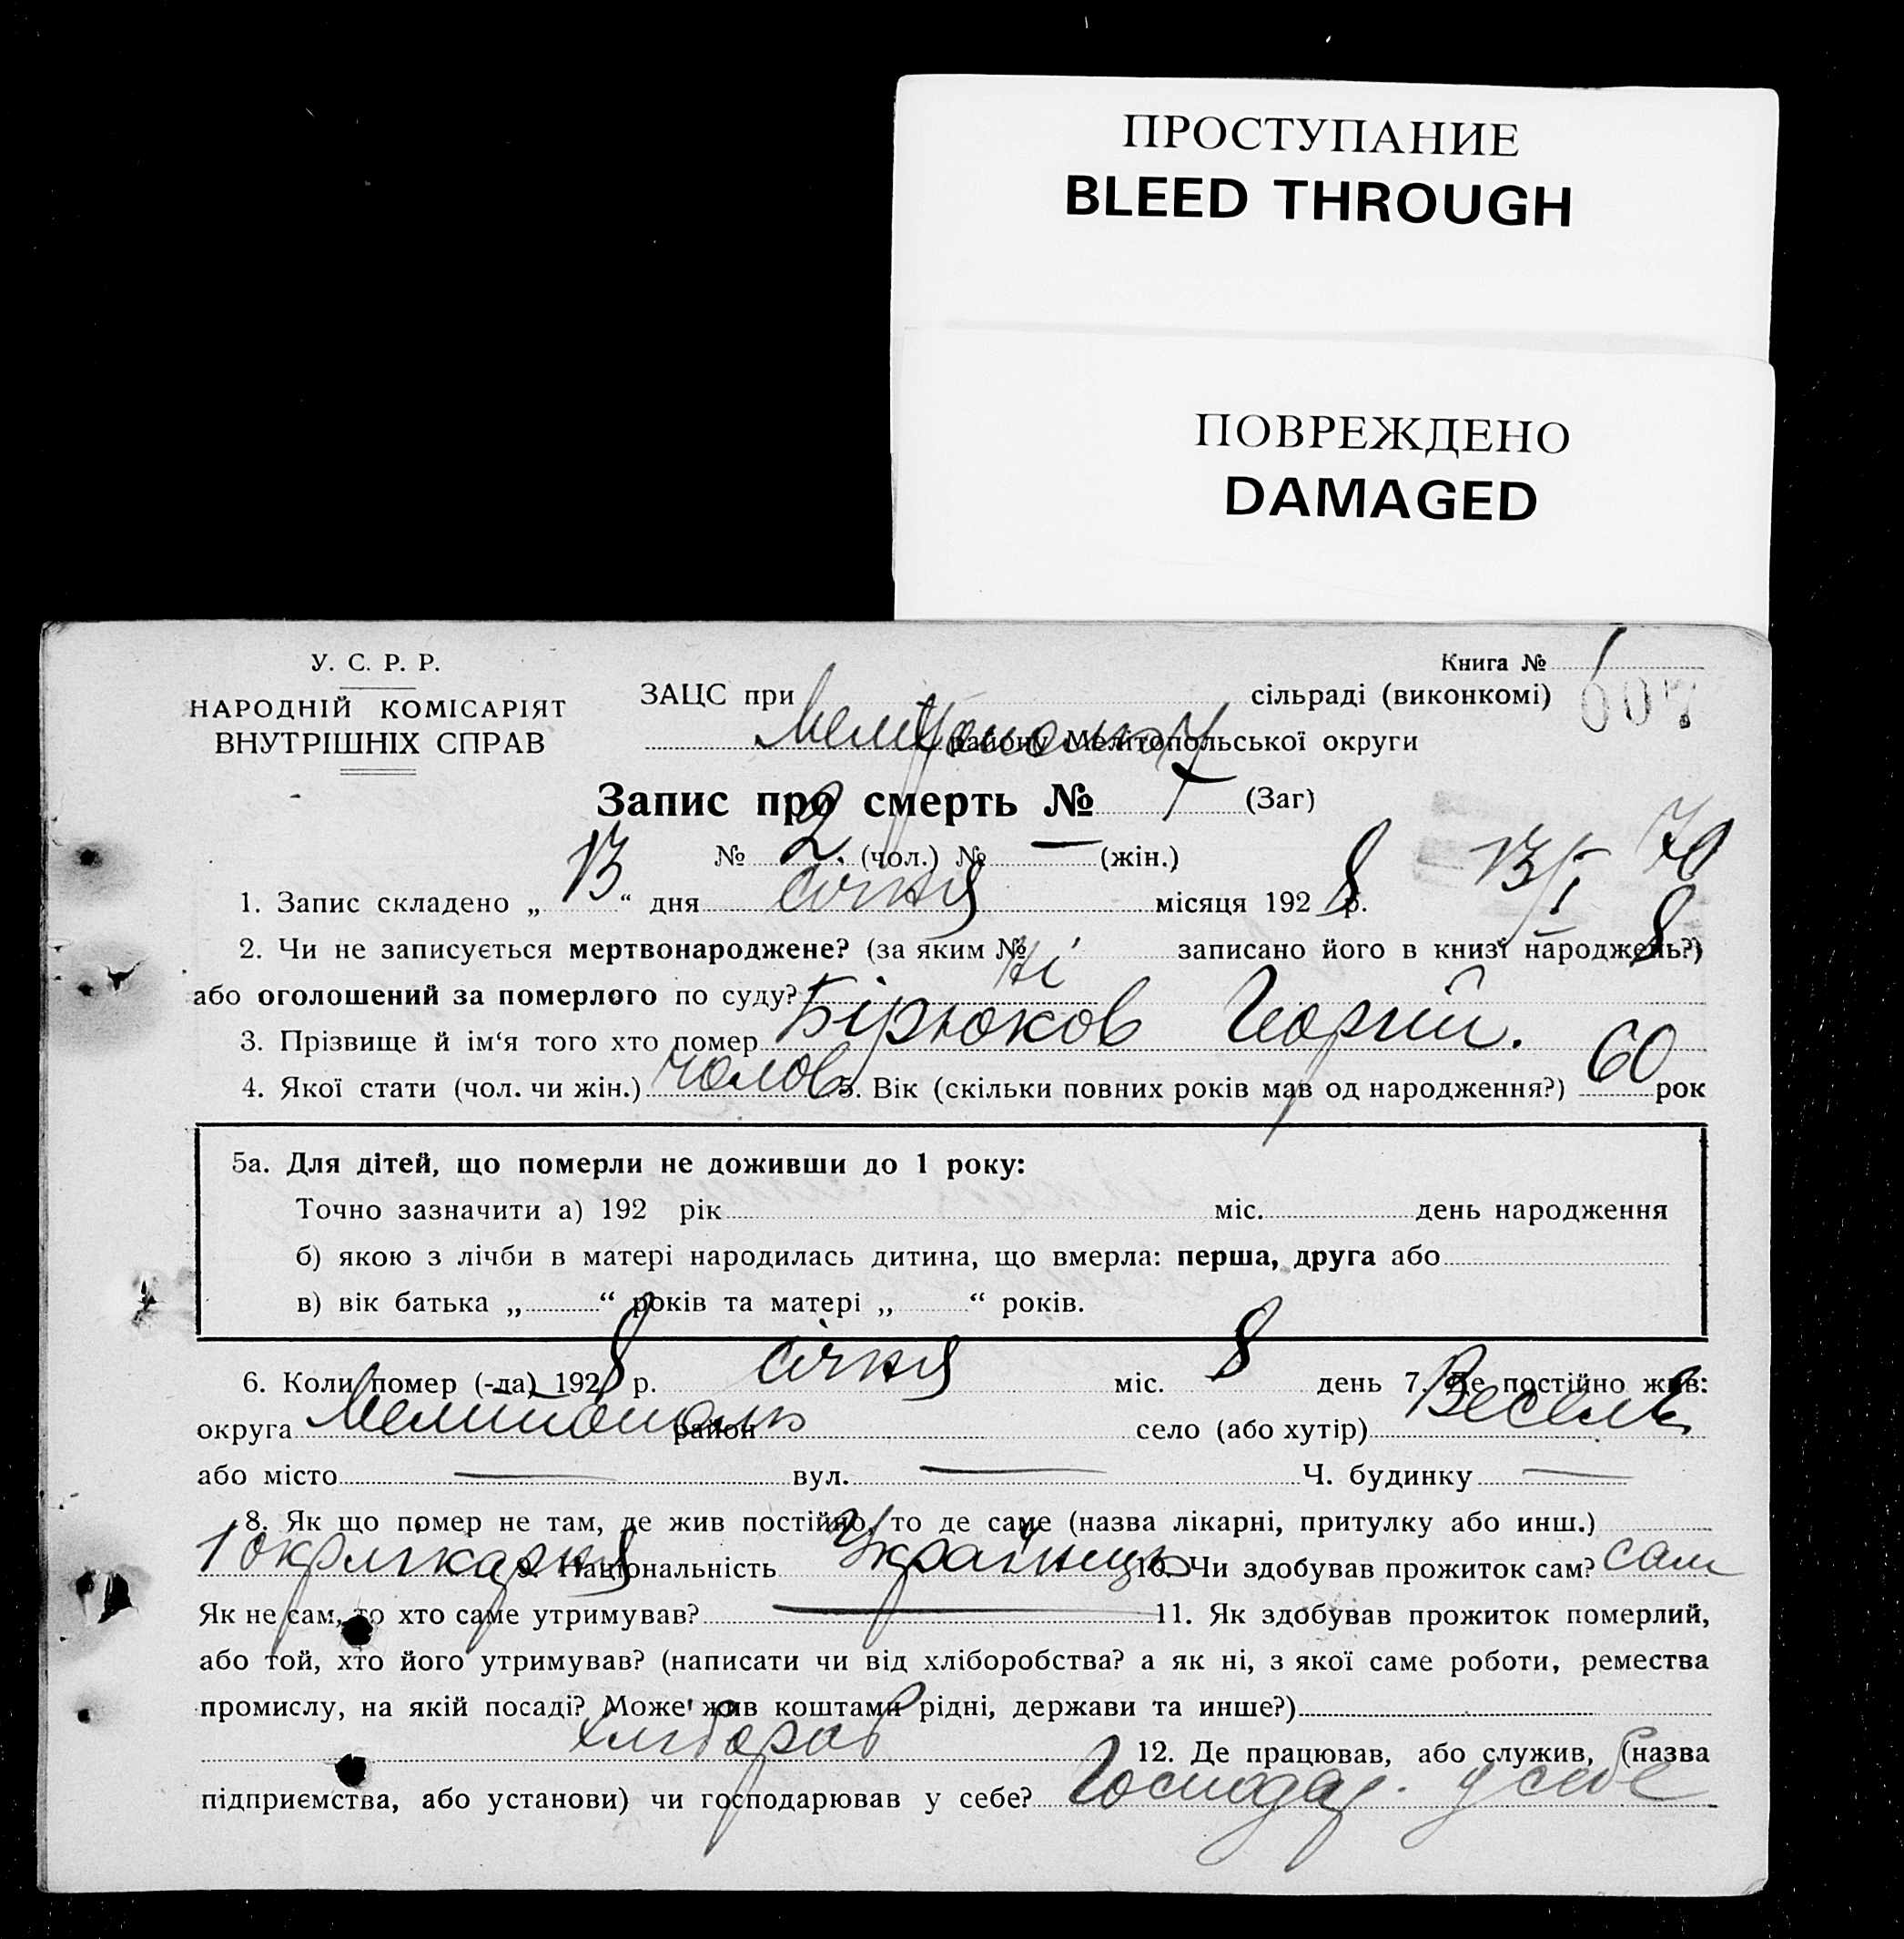 ПРОСТУПАНИЕ
BLEED THROUGH
ПОВРЕЖДЕНО
DAMAGED
У. С. Р. Р.
НАРОДНІЙ КОМІСАРІЯТ
ВНУТРІШНІХ СПРАВ
Книга № 1
007
ЗАЦС при сільраді (виконкомі)
району Мелітопольської округи
Запис про смерть № 7 (Заг)
№ 2 (чол.) № — (жін.)
1. Запис складено „ 13 “ дня січня місяця 192 8 р. 13/I
2. Чи не записується мертвонароджене? (за яким № ні записано його в книзі народжень?) 8
або оголошений за померлого по суду?
3. Прізвище й ім‘я того хто помер Бірюков Георгій.
4. Якої стати (чол. чи жін.) чолов 5. Вік (скільки повних років мав од народження?) 60 рок
5а. Для дітей, що померли не доживши до 1 року:
Точно зазначити а) 192 рік міс. день народження
б) якою з лічби в матері народилась дитина, що вмерла: перша, друга або
в) вік батька „ “ років та матері „ “ років.
6. Коли помер (-ла) 192 8 р. січня міс. 8 день 7. Де постійно жив:
округа район село (або хутір)
або місто — вул. — Ч. будинку —
8. Як що помер не там, де жив постійно, то де саме (назва лікарні, притулку або инш.)
1 окрлікарня 9. Національність Українець 10. Чи здобував прожиток сам? сам
Як не сам, то хто саме утримував? — 11. Як здобував прожиток померлий,
або той, хто його утримував? (написати чи від хліборобства? а як ні, з якої саме роботи, ремества
промислу, на якій посаді? Може жив коштами рідні, держави та инше?)
хлібороб 12. Де працював, або служив, (назва
підприємства, або установи) чи господарював у себе? Господар. у себе